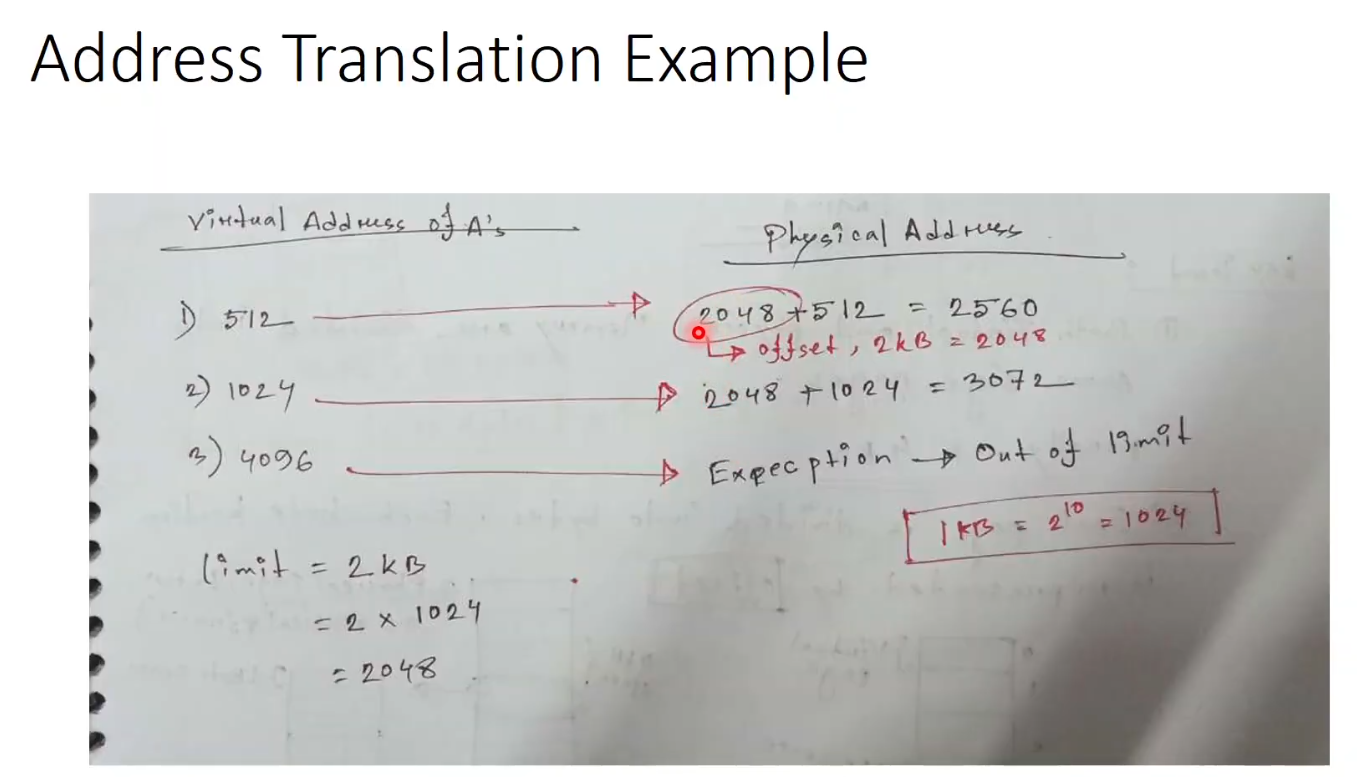 Address Translation Example
Virtual Address of A's
Physical Address
1) 512
2048 + 512 = 2560
offset, 2kB = 2048
2) 1024
2048 + 1024 = 3072
3) 4096
Expecption → Out of limit
1kB = 2^10 = 1024
limit = 2kB
= 2 x 1024
= 2048